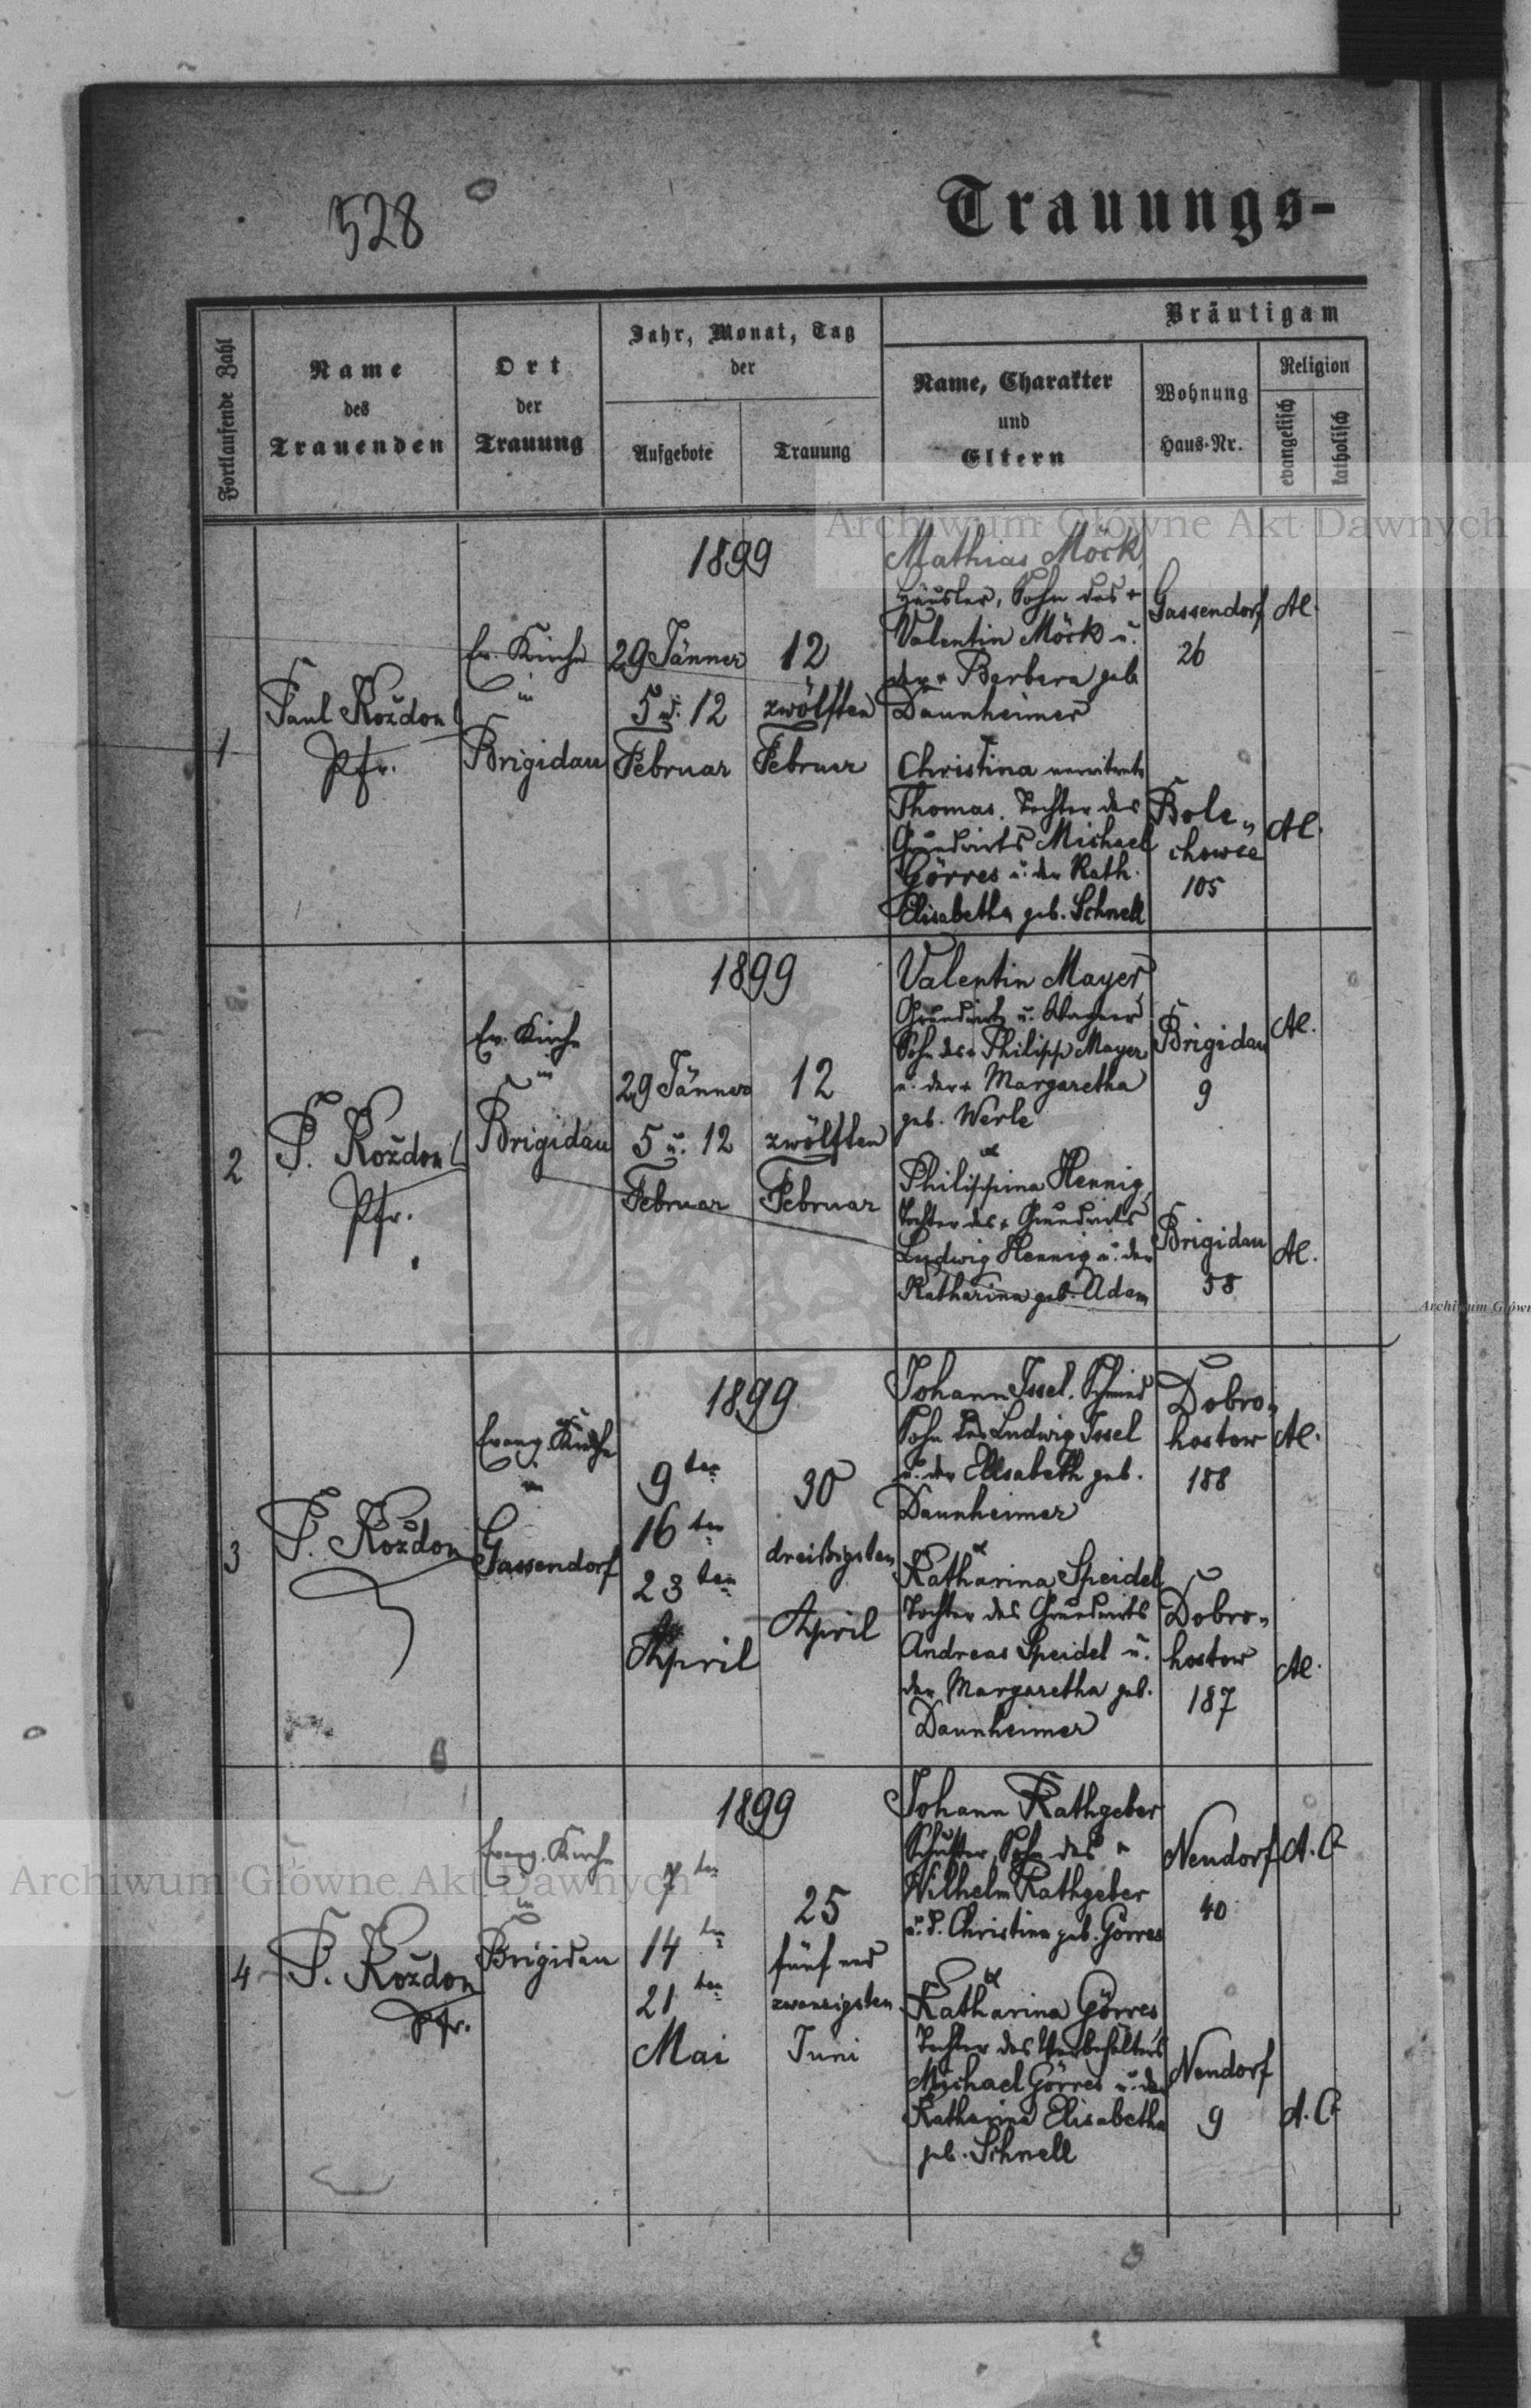 528
Trauungs-
Fortlaufende Zahl
Name
des
Trauenden
Ort
der
Trauung
Jahr, Monat, Tag
der
Aufgebote
Trauung
Bräutigam
Name, Charakter
und
Eltern
Wohnung
Haus-Nr.
Religion
evangelisch
katholisch
1
Paul Koždon
Pfr.
Ev. Kirche
in
Brigidau
1899
29 Jänner
5 u. 12
Februar
12
zwölften
Februar
Mathias Möck,
Häusler, Sohn des +
Valentin Möck u.
der + Barbara geb
Daunheimer
Christina verwitwete
Thomas, Tochter des
Grundwirts Michael
Görres u. der Kath.
Elisabetha geb. Schnell
Gassendorf
26
Bole„
chowce
105
2
P. Koždon
Pfr.
Ev. Kirche
in
Brigidau
1899
29 Jänner
5 u. 12
Februar
12
zwölften
Februar
Valentin Mayer,
Grundwirt u. Wagner
Sohn des + Philipp Mayer
u. der + Margaretha
geb. Werle
Philippina Hennig,
Tochter des + Grundwirts
Ludwig Hennig u. der
Katharina geb. Adam
Brigidau
9
Brigidau
58
3
P. Koždon
Evang. Kirche
in
Gassendorf
1899
9ten
16ten
23ten
April
30
dreißigsten
April
Johann Issel, Schmied
Sohn des Ludwig Issel
u. der Elisabeth geb.
Daunheimer
Katharina Speidel
Tochter des Grundwirts
Andreas Speidel u.
der Margaretha geb.
Daunheimer
Dobro„
hostow
188
Dobro„
hostow
187
4
P. Koždon
Pfr.
Evang. Kirche
in
Brigidau
1899
7ten
14ten
21ten
Mai
25
fünf und
zwanzigsten
Juni
Johann Rathgeber
Schuster, Sohn des +
Wilhelm Rathgeber
u. d. Christina geb. Görres
Katharina Görres
Tochter des
Michael Görres u. der
Katharina Elisabetha
geb. Schnell
Neudorf
40
A. C
Neudorf
9
A. C
Archiwum Główne Akt Dawnych
Archiwum Główne Akt Dawnych